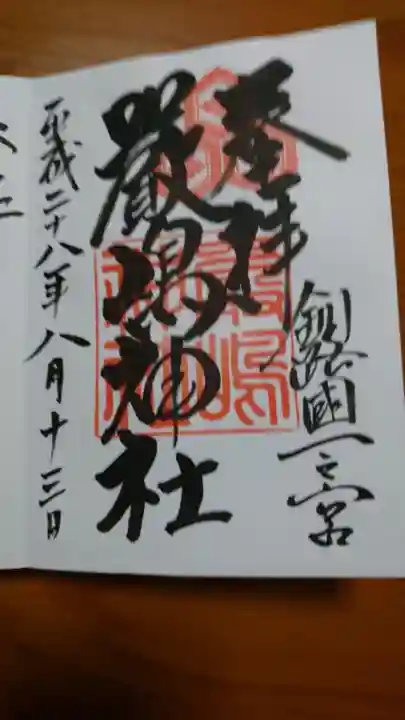 釧路國一之宮
奉拝
厳島神社
平成二十八年八月十三日